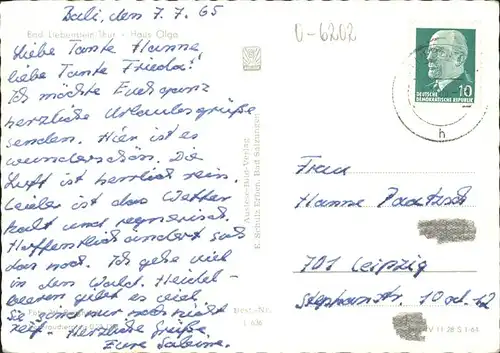 Bali, den 7.7.65
Bad Liebenstein Thür. - Haus Olga
Liebe Tante Hanne,
liebe Tante Frieda!
Ich möchte Euch ganz
herzliche Urlaubsgrüße
senden. Hier ist es
wunderschön. Die
Luft ist herrlich rein.
Leider ist das Wetter
kalt und regnerisch.
Hoffentlich ändert sich
das noch. Ich gehe viel
in den Wald. Heidel-
beeren gibt es viel,
sie sind nur noch nicht
reif. Herzliche Grüße
Eure Sabine.
Auslese-Bild-Verlag
E. Scholz Erben, Bad Salzungen
Best.-Nr.
V 11 28 S 1 65
U-6202
DEUTSCHE
DEMOKRATISCHE REPUBLIK
10
h
Frau
Hanne
701 Leipzig
Stephanstr. 10